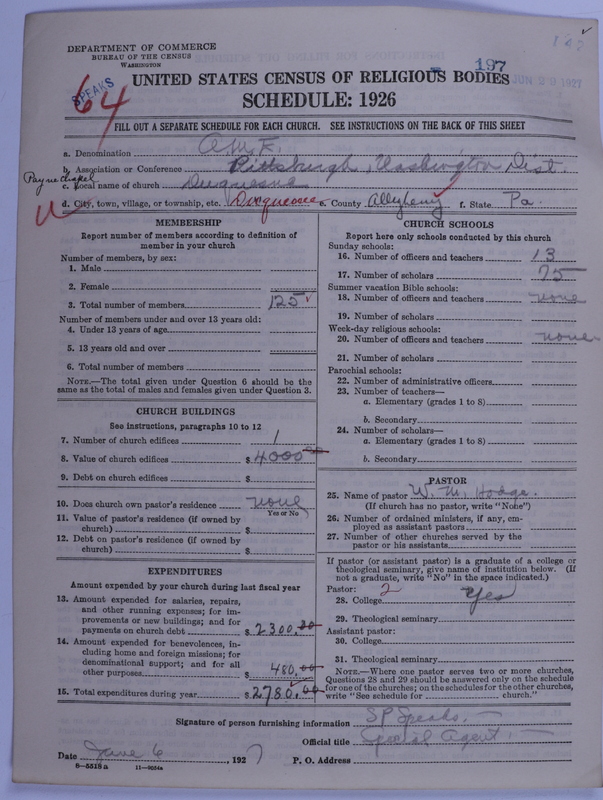 DEPARTMENT OF COMMERCE
BUREAU OF THE CENSUS
WASHINGTON
SPEAKS
64
197
JUN 28 1927
UNITED STATES CENSUS OF RELIGIOUS BODIES
SCHEDULE: 1926
FILL OUT A SEPARATE SCHEDULE FOR EACH CHURCH. SEE INSTRUCTIONS ON THE BACK OF THIS SHEET
a. Denomination A.M.E.
b. Association or Conference Pittsburgh, Washington Dist.
Payne Chapel
c. Local name of church Duquesne
d. City, town, village, or township, etc. Duquesne e. County Allegheny f. State Pa.
MEMBERSHIP
Report number of members according to definition of
member in your church
Number of members, by sex:
1. Male
2. Female
3. Total number of members 125
Number of members under and over 13 years old:
4. Under 13 years of age
5. 13 years old and over
6. Total number of members
NOTE.—The total given under Question 6 should be the
same as the total of males and females given under Question 3.
CHURCH BUILDINGS
See instructions, paragraphs 10 to 12
7. Number of church edifices 1
8. Value of church edifices $ 4000
9. Debt on church edifices $
10. Does church own pastor's residence none
Yes or No
11. Value of pastor's residence (if owned by
church) $
12. Debt on pastor's residence (if owned by
church) $
EXPENDITURES
Amount expended by your church during last fiscal year
13. Amount expended for salaries, repairs,
and other running expenses; for im-
provements or new buildings; and for
payments on church debt $ 2300.00
14. Amount expended for benevolences, in-
cluding home and foreign missions; for
denominational support; and for all
other purposes $ 480.00
15. Total expenditures during year $ 2780.00
CHURCH SCHOOLS
Report here only schools conducted by this church
Sunday schools:
16. Number of officers and teachers 13
17. Number of scholars 75
Summer vacation Bible schools:
18. Number of officers and teachers none
19. Number of scholars
Week-day religious schools:
20. Number of officers and teachers none
21. Number of scholars
Parochial schools:
22. Number of administrative officers
23. Number of teachers—
a. Elementary (grades 1 to 8)
b. Secondary
24. Number of scholars—
a. Elementary (grades 1 to 8)
b. Secondary
PASTOR
25. Name of pastor W. M. Hodge.
(If church has no pastor, write "None")
26. Number of ordained ministers, if any, em-
ployed as assistant pastors
27. Number of other churches served by the
pastor or his assistants
If pastor (or assistant pastor) is a graduate of a college or
theological seminary, give name of institution below. (If
not a graduate, write "No" in the space indicated.)
Pastor: 2
28. College yes
29. Theological seminary
Assistant pastor:
30. College
31. Theological seminary
NOTE.—Where one pastor serves two or more churches,
Questions 28 and 29 should be answered only on the schedule
for one of the churches; on the schedules for the other churches,
write "See schedule for church."
Signature of person furnishing information S P Speaks,
Official title Special Agent.
Date June 6, 1927 P. O. Address
8—5518 a 11—9054a